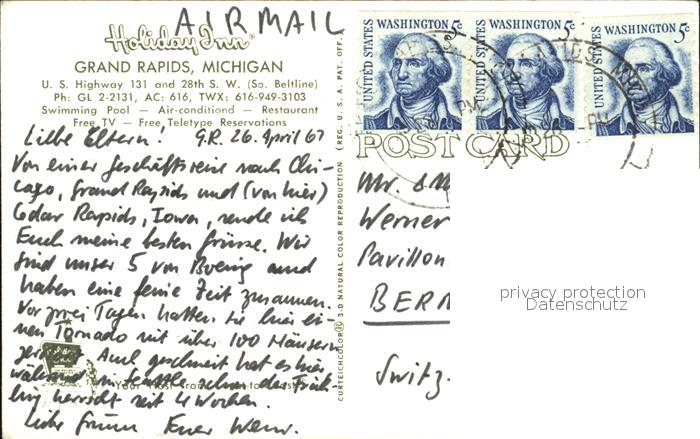 AIRMAIL
Holiday Inn
GRAND RAPIDS, MICHIGAN
U. S. Highway 131 and 28th S. W. (So. Beltline)
Ph: GL 2-2131, AC: 616, TWX: 616-949-3103
Swimming Pool — Air-conditioned — Restaurant
Free TV — Free Teletype Reservations
Liebe Eltern! G.R. 26. April 67
Von einer Geschäftsreise nach Chi-
cago, Grand Rapids und (von hier)
Cedar Rapids, Iowa, sende ich
Euch meine besten Grüsse. Wir
sind unser 5 von Boeing und
haben eine feine Zeit zusammen.
Vor zwei Tagen hatten sie hier ei-
nen Tornado mit über 100 Häusern
Auch geschneit hat es hier
während in Seattle schon der Früh-
ling herrscht seit 4 Wochen.
Liebe Grüsse Euer Wern.
"Your Host from
CURTEICHCOLOR® 3-D NATURAL COLOR REPRODUCTION (REG. U. S. A. PAT. OFF.
UNITED STATES WASHINGTON 5c
UNITED STATES WASHINGTON 5c
UNITED STATES WASHINGTON 5c
POST CARD
Mr.
Werner
Pavillon
BER
Switz.
privacy protection
Datenschutz